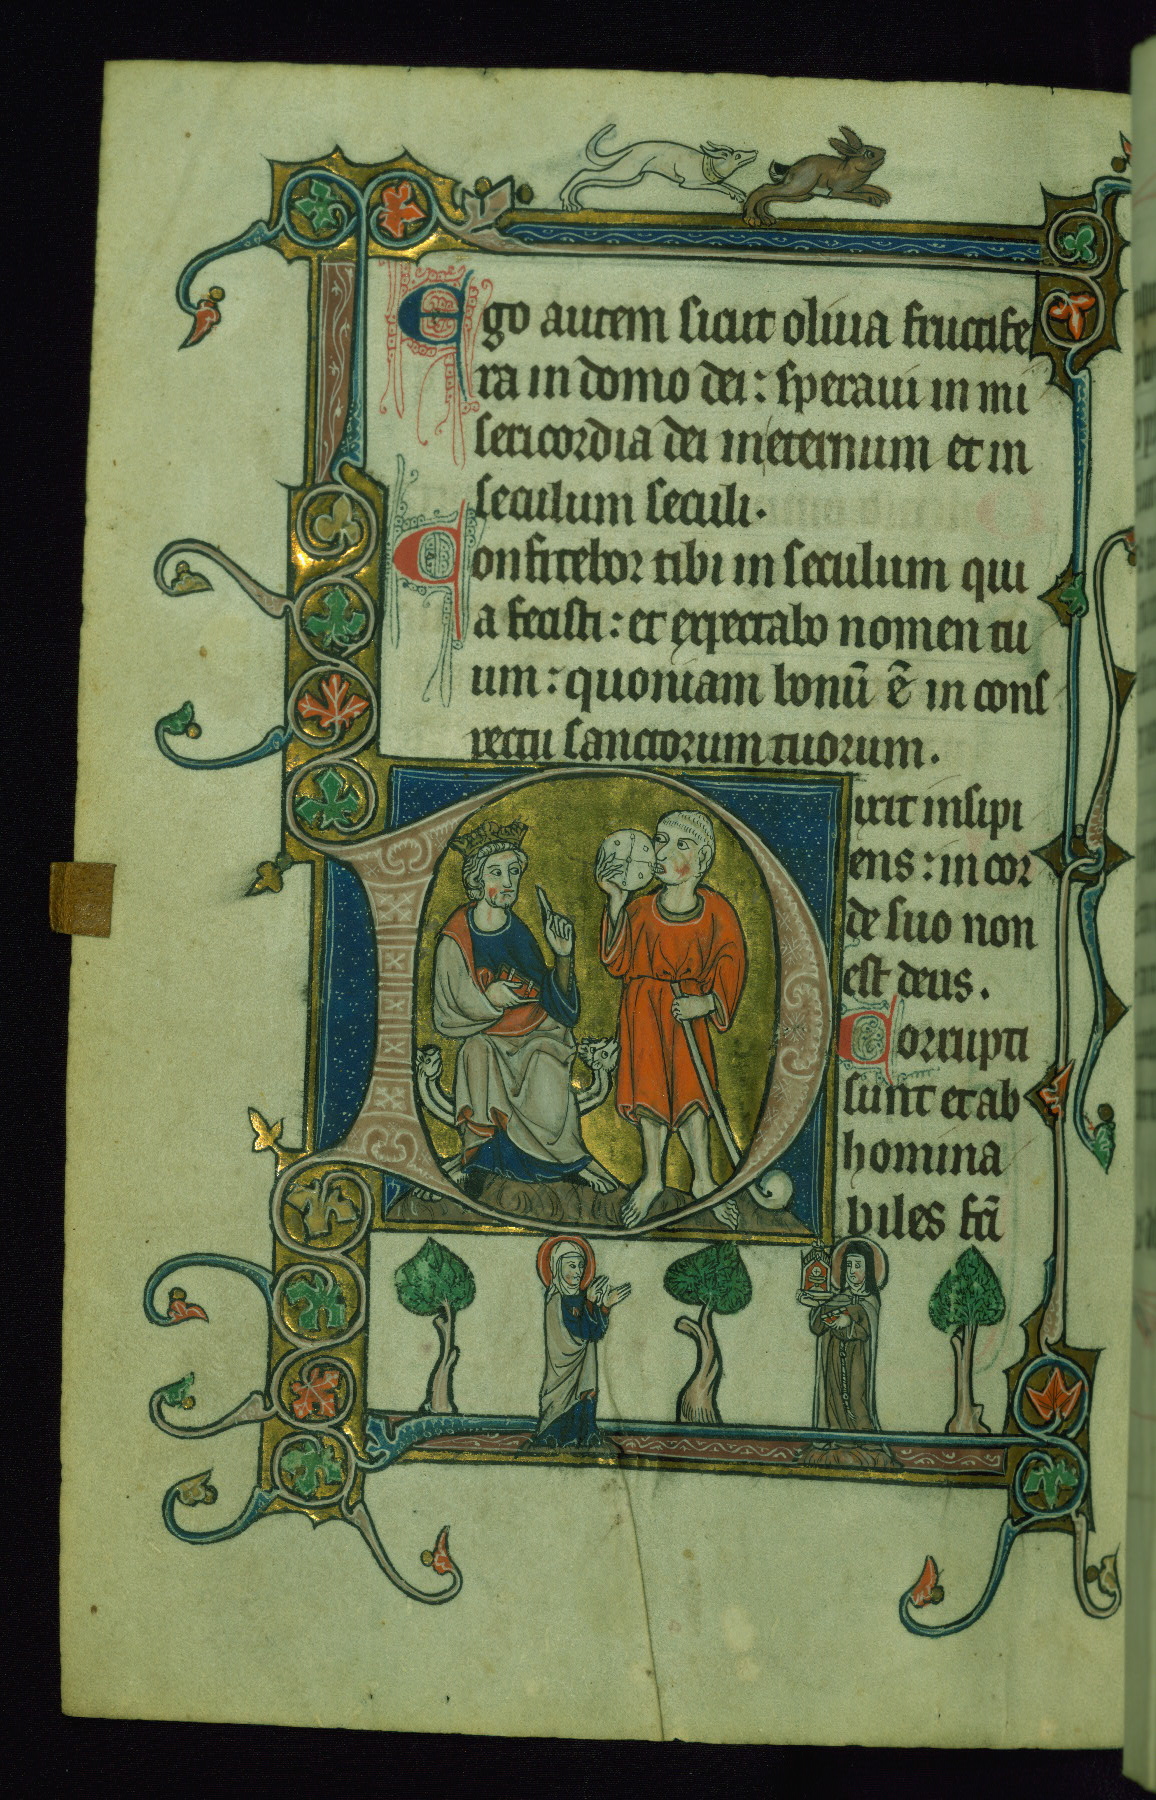 Ego autem sicut oliua fructife
ra in domo dei: speraui in mi
sericordia dei in eternum et in
seculum seculi.
Confitebor tibi in seculum qui
a fecisti: et expectabo nomen tu
um: quoniam bonū ē in cons
pectu sanctorum tuorum.
Dixit insipi
ens: in cor
de suo non
est deus.
Corrupti
sunt et ab
homina
biles fcī